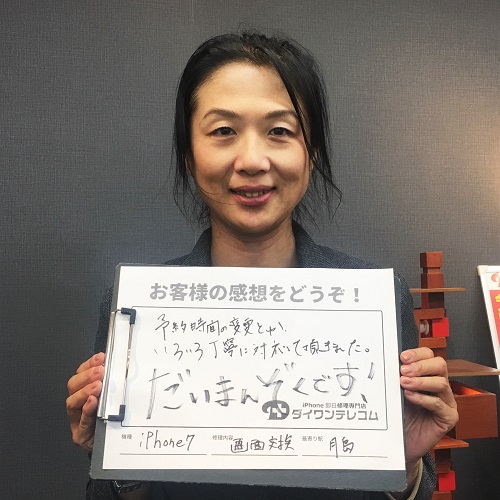 お客様の感想をどうぞ！
予約時間の変更とか、
いろいろ丁寧に対応して頂きました。
だいまんぞくです！
iPhone即日修理専門店
ダイワンテレコム
機種 iPhone7 修理内容 画面交換 最寄り駅 月島